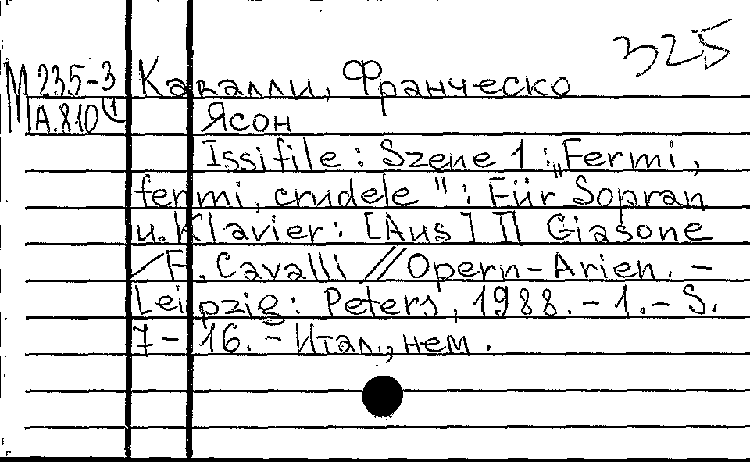 325
М 235-3 Кавалли, Франческо
А.810(1 Ясон
Issifile : Szene 1 : „Fermi,
fermi, crudele" : Für Sopran
u. Klavier : [Aus] Il Giasone
/ F. Cavalli // Opern-Arien. –
Leipzig : Peters, 1988. – 1. – S.
7 – 16. – Итал., нем.